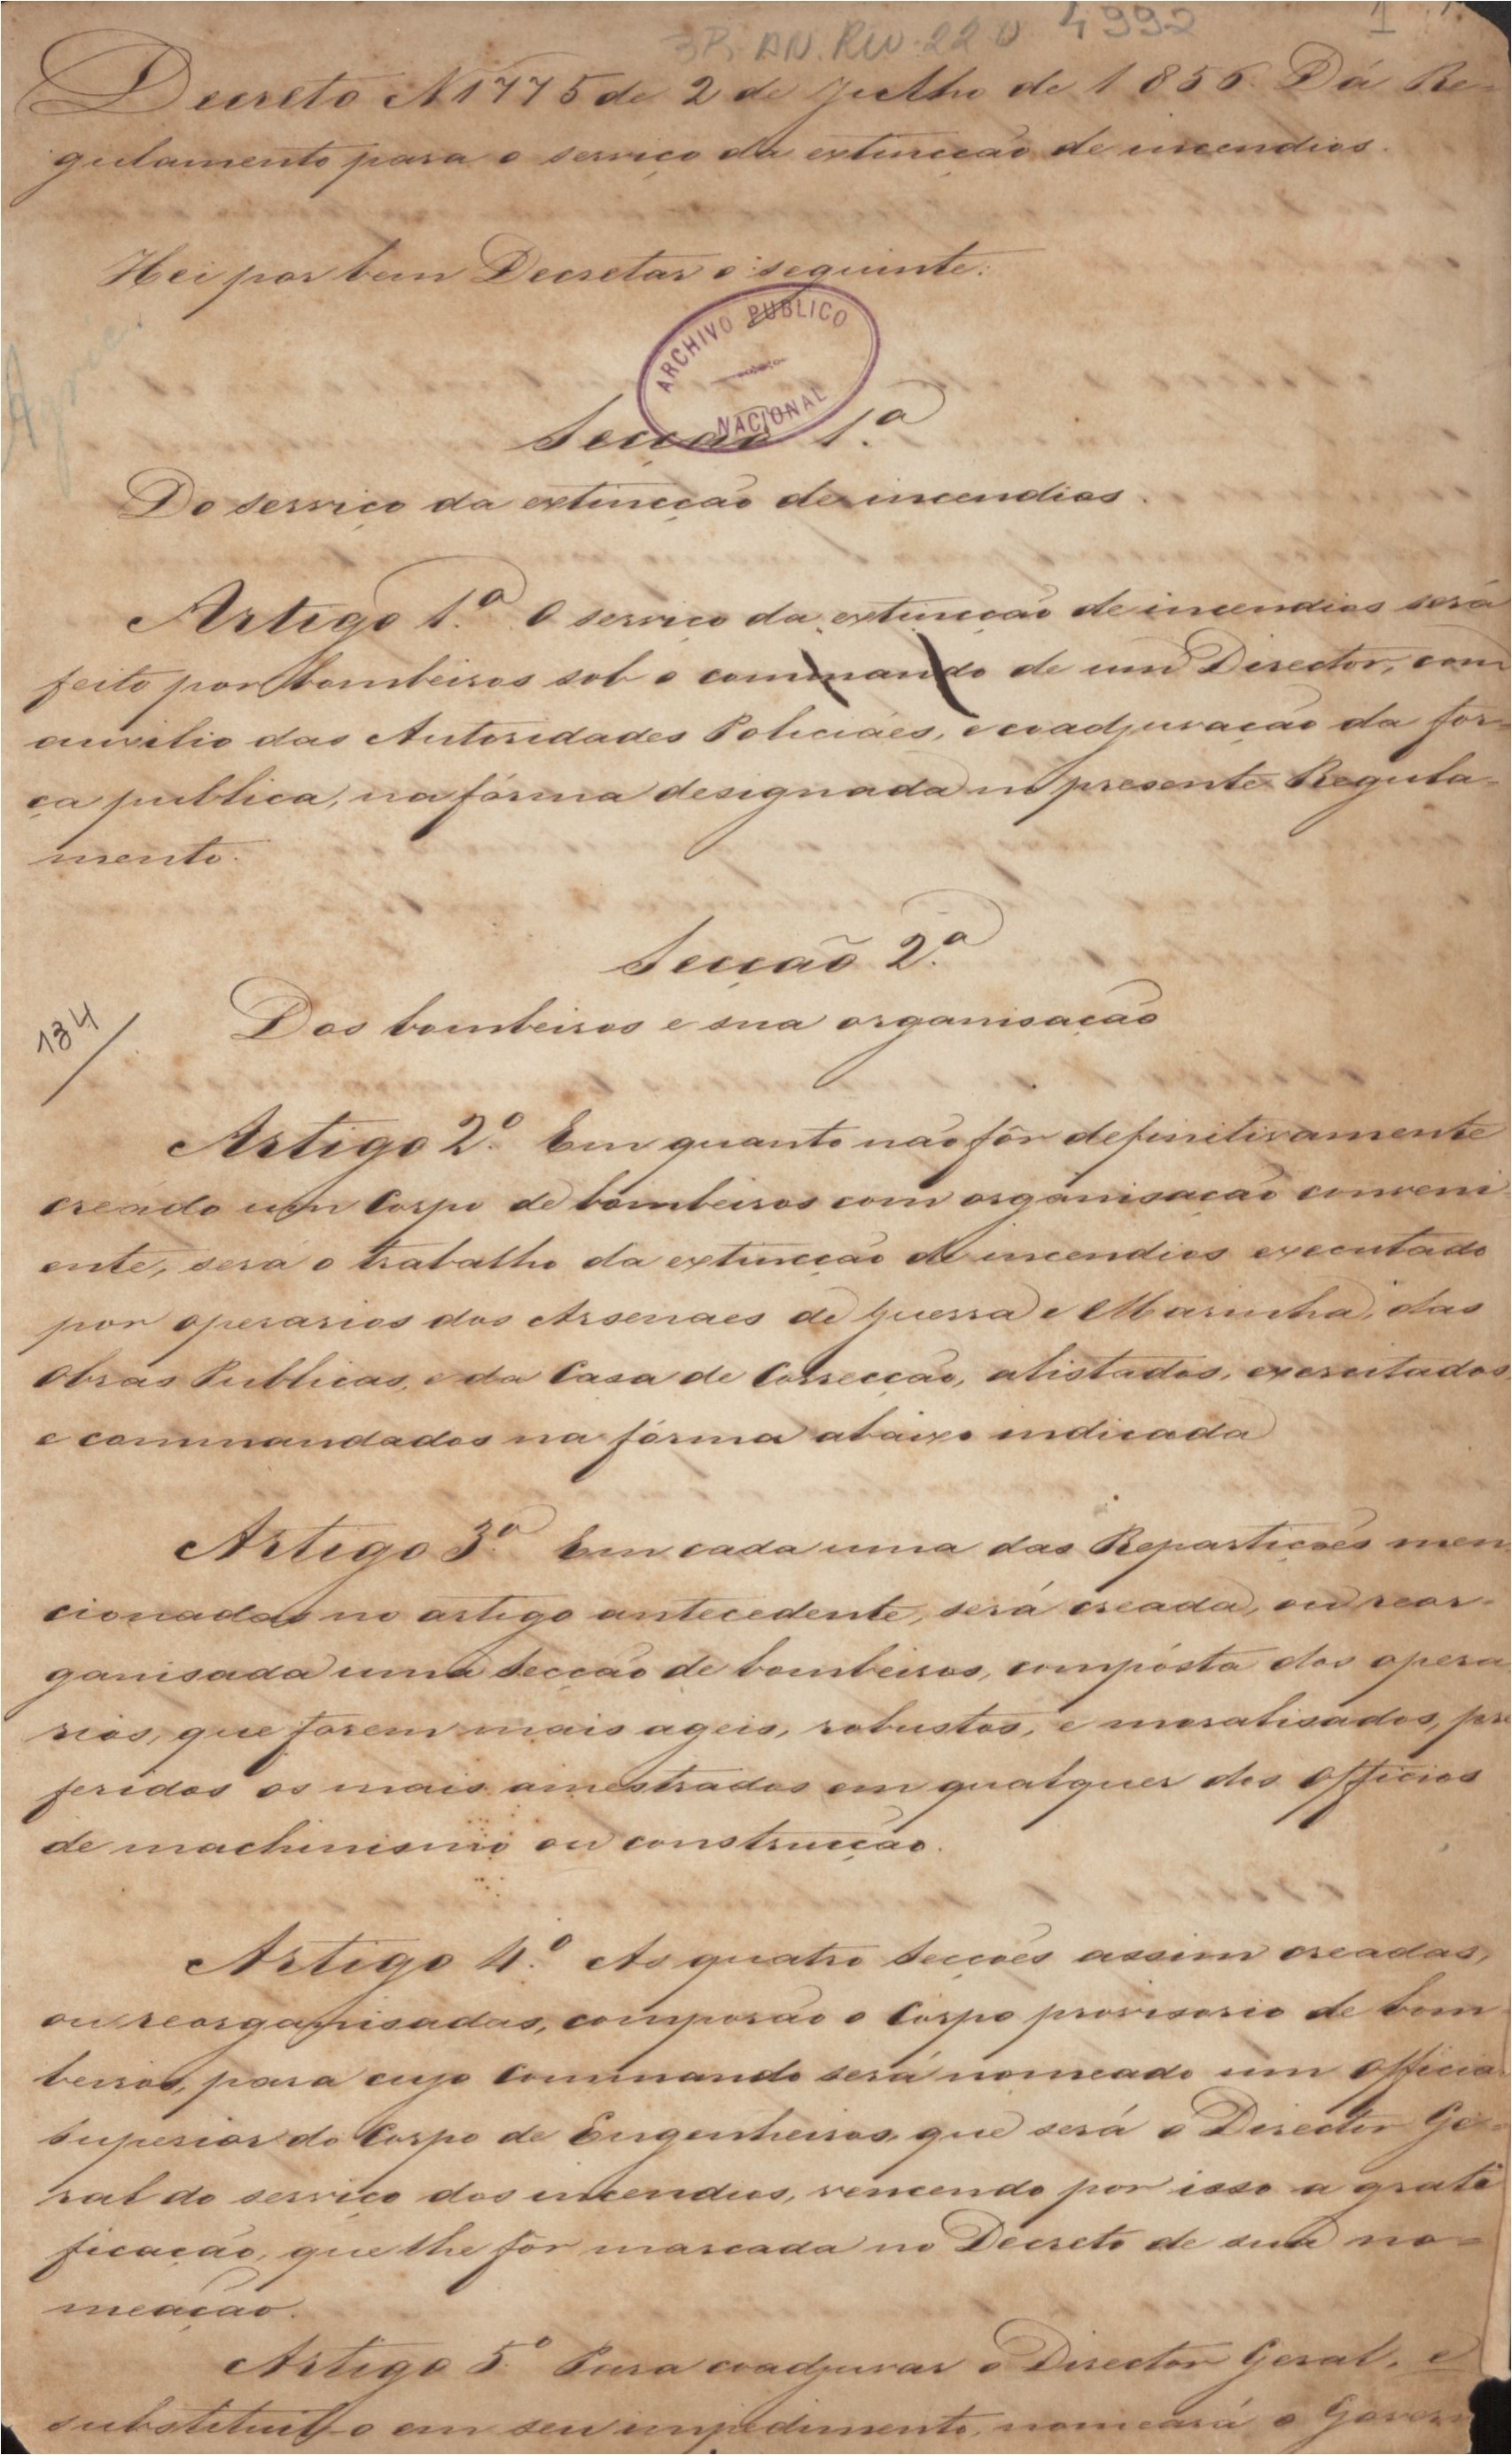 BR. AN. RIO. 22.0. 4992
1
Decreto N 1775 de 2 de Julho de 1856. Dá Re-
gulamento para o serviço da extincção de incendios.
Hei por bem Decretar o seguinte:
ARCHIVO PUBLICO
NACIONAL
Secção 1.ª
Do serviço da extincção de incendios.
Artigo 1.º O serviço da extincção de incendios será
feito por bombeiros sob o commando de um Director, com
auxilio das Autoridades Policiáes, e coadjuvação da for-
ça publica, na fórma designada no presente Regula-
mento.
Secção 2.ª
134
Dos bombeiros e sua organisação
Artigo 2.º Em quanto não fôr definitivamente
creado um Corpo de bombeiros com organisação conveni
ente, será o trabalho da extincção de incendios executado
por operarios dos Arsenaes de Guerra e Marinha, das
Obras Publicas, e da Casa de Correcção, alistados, exercitados,
e commandados na fórma abaixo indicada
Artigo 3.º Em cada uma das Repartições men
cionadas no artigo antecedente, será creada, ou reor-
ganisada uma Secção de bombeiros, compósta dos opera
rios, que forem mais ageis, robustos, e moralisados, pre
feridos os mais amestrados em qualquer dos Officios
de machinismo ou construcção.
Artigo 4.º As quatro Secções assim creadas,
ou reorganisadas, comporão o Corpo provisorio de bom
beiros, para cujo Commando será nomeado um Official
Superior do Corpo de Engenheiros, que será o Director Ge-
ral do serviço dos incendios, vencendo por isso a grati
ficação, que lhe fôr marcada no Decreto de sua no-
meação.
Artigo 5.º Para coadjuvar o Director Geral, e
substituil-o em seu impedimento, nomeará o Govern